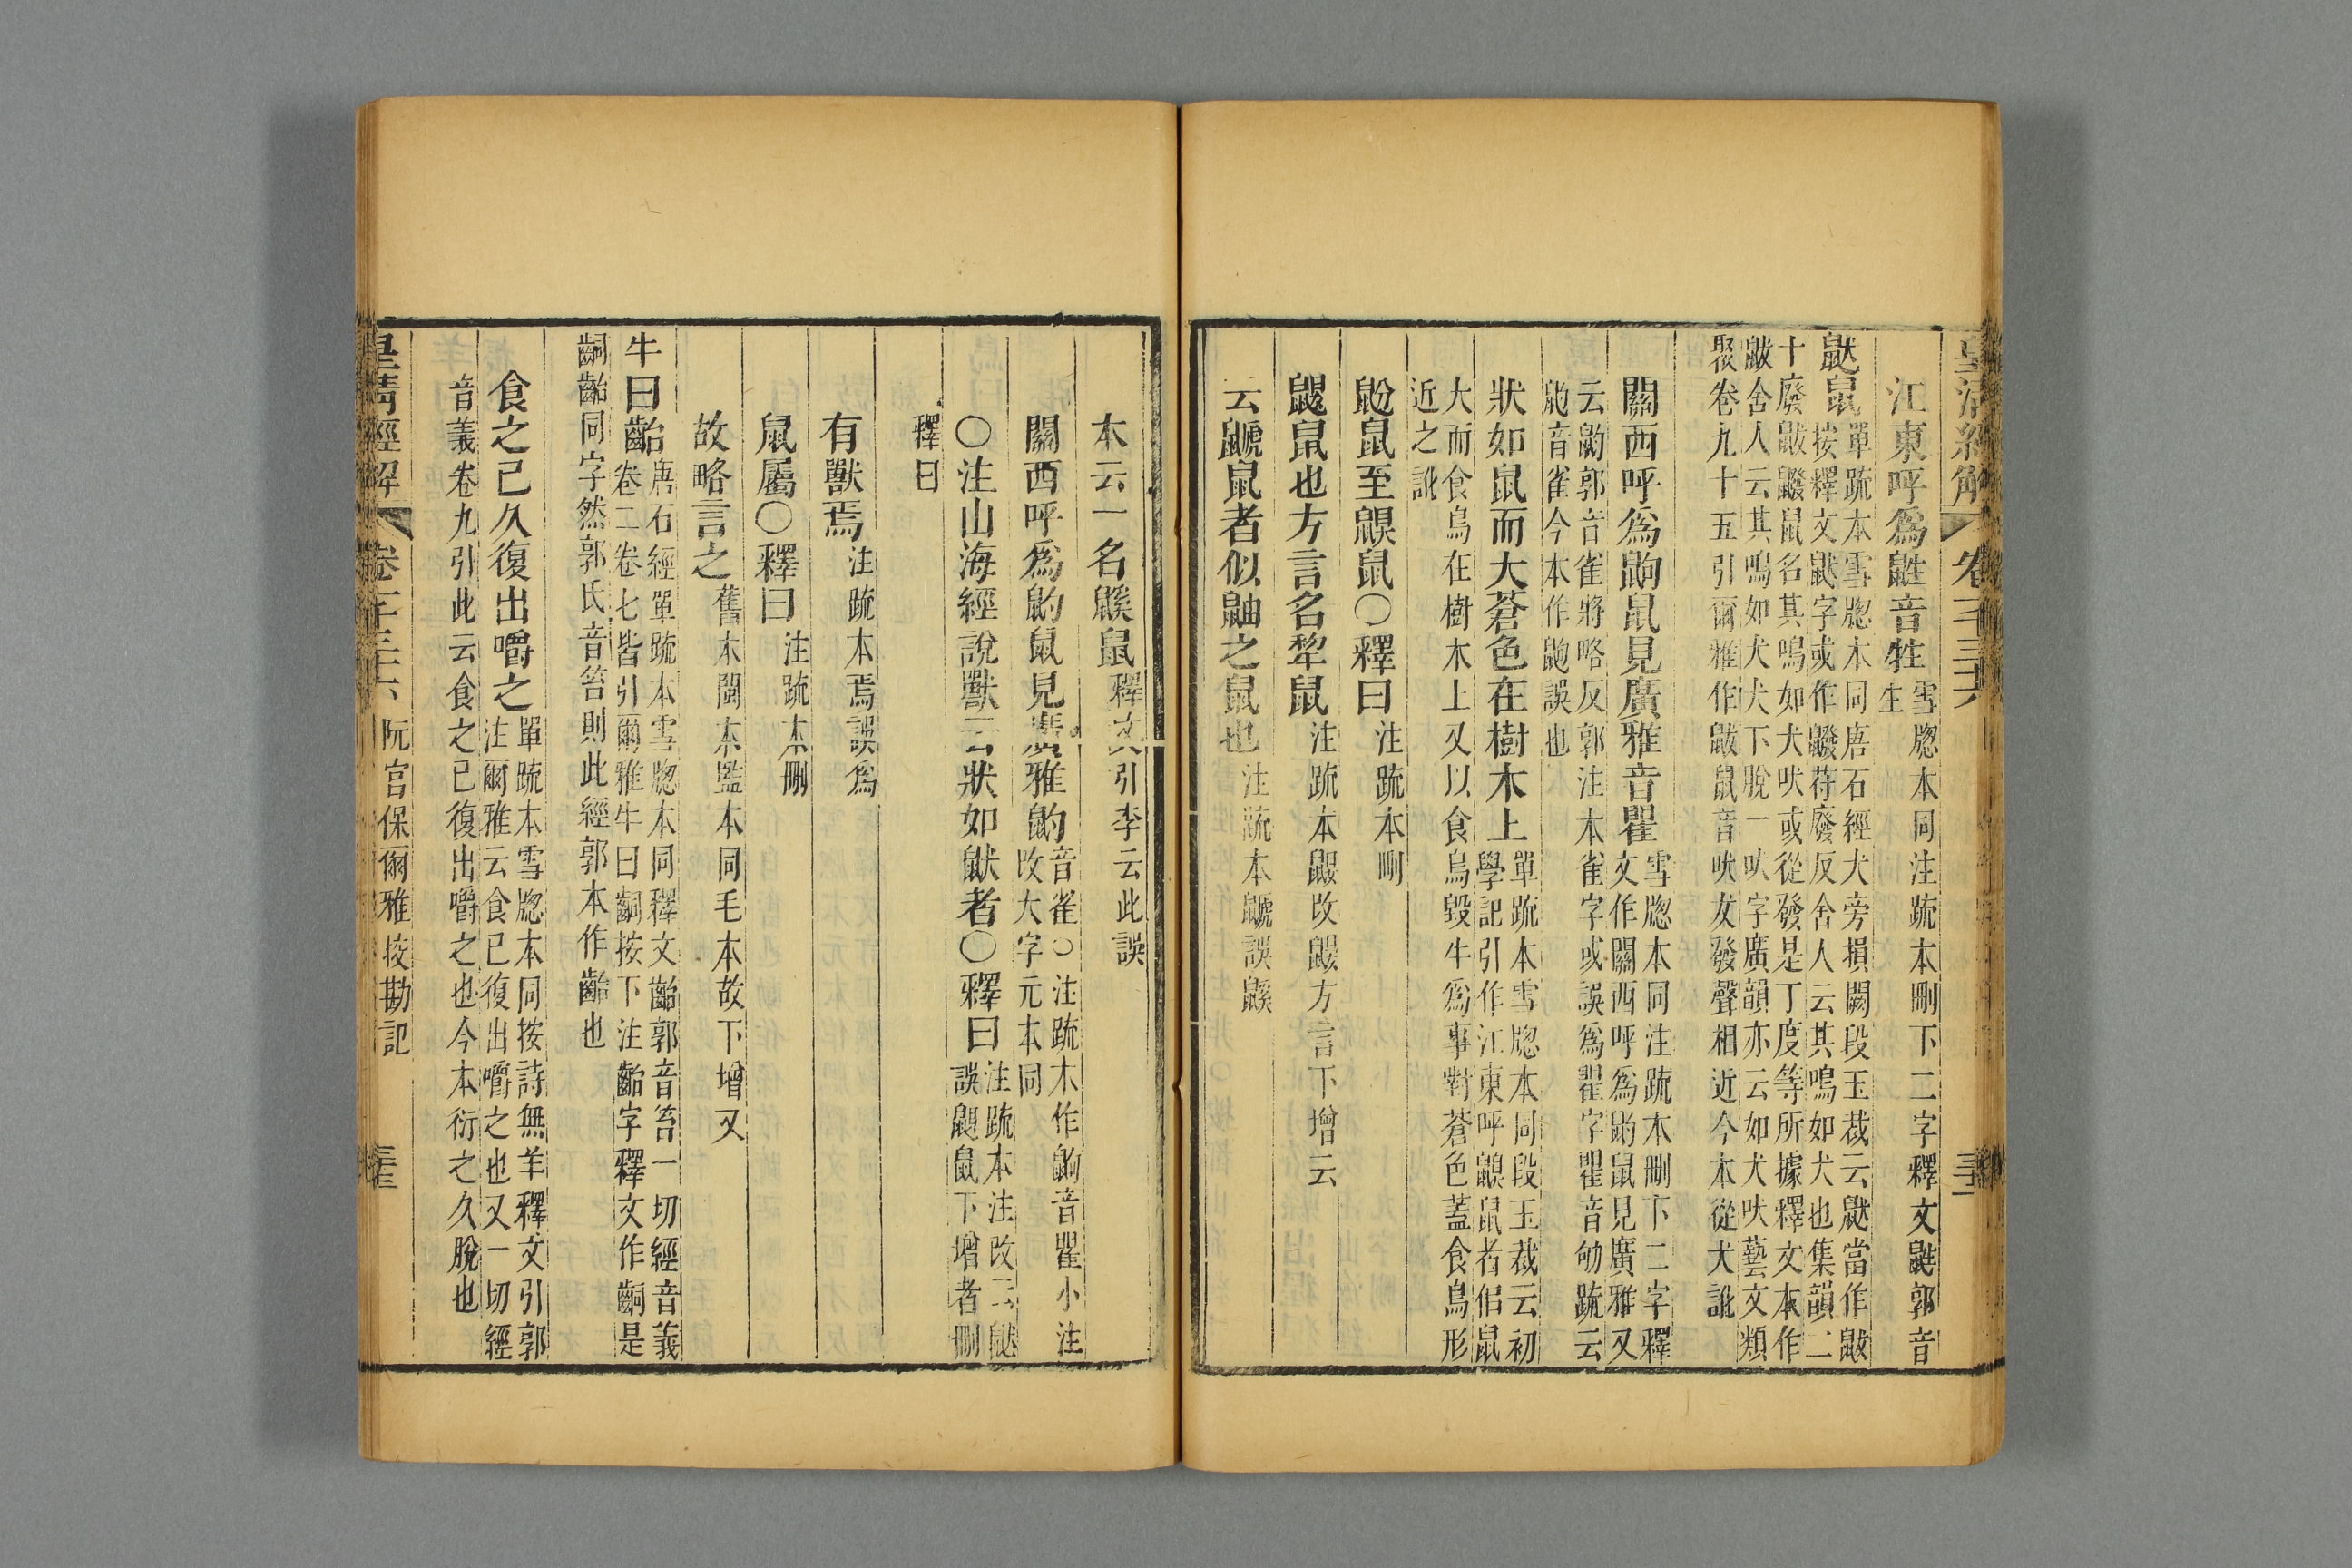 皇清經解 卷一千三十六
江東呼爲鼪音牲雪牕本同注疏本刪下二字釋文鼪郭音
生
鼣鼠單疏本雪牕本同唐石經犬旁損闕段玉裁云鼣當作鼥
按釋文鼣字或作𪕾苻廢反舍人云其鳴如犬也集韻二
十廢鼥𪕾鼠名其鳴如犬吠或從發是丁度等所據釋文本作
鼥舍人云其鳴如犬犬下脫一吠字廣韻亦云如犬吠藝文類
聚卷九十五引爾雅作鼥鼠音吠犮發聲相近今本從犬訛
關西呼爲鼩鼠見廣雅音瞿雪牕本同注疏本刪下二字釋
文作關西呼爲鼩鼠見廣雅又
云鼩郭音雀將略反郭注本雀字或誤爲瞿字瞿音劬疏云
鼩音雀今本作鼩誤也
狀如鼠而大蒼色在樹木上單疏本雪牕本同段玉裁云初
學記引作江東呼鼳鼠者佀鼠
大而食鳥在樹木上又以食鳥毀牛爲事對蒼色蓋食鳥形
近之訛
鼢鼠至鼳鼠〇釋曰注疏本刪
鼴鼠也方言名犂鼠注疏本鼴改鼹方言下增云
云鼶鼠者似鼬之鼠也注疏本鼶誤鼷
本云一名鼷鼠釋文引李云此誤
關西呼爲鼩鼠見廣雅鼩音雀〇注疏本作鼩音瞿小注
改大字元本同
〇注山海經說獸云狀如鼣者〇釋曰注疏本注改云鼣
誤鼰鼠下增者刪
釋曰
有獸焉注疏本焉誤爲
鼠屬〇釋曰注疏本刪
故略言之舊本閩本監本同毛本故下增又
牛曰齝唐石經單疏本雪牕本同釋文齝郭音笞一切經音義
卷二卷七皆引爾雅牛曰齝按下注齝字釋文作齝是
齝齝同字然郭氏音笞則此經郭本作齝也
食之已久復出嚼之單疏本雪牕本同按詩無羊釋文引郭
注爾雅云食已復出嚼之也又一切經
音義卷九引此云食之已復出嚼之也今本衍之久脫也
皇淸經解 卷一千三十六 阮宮保爾雅挍勘記